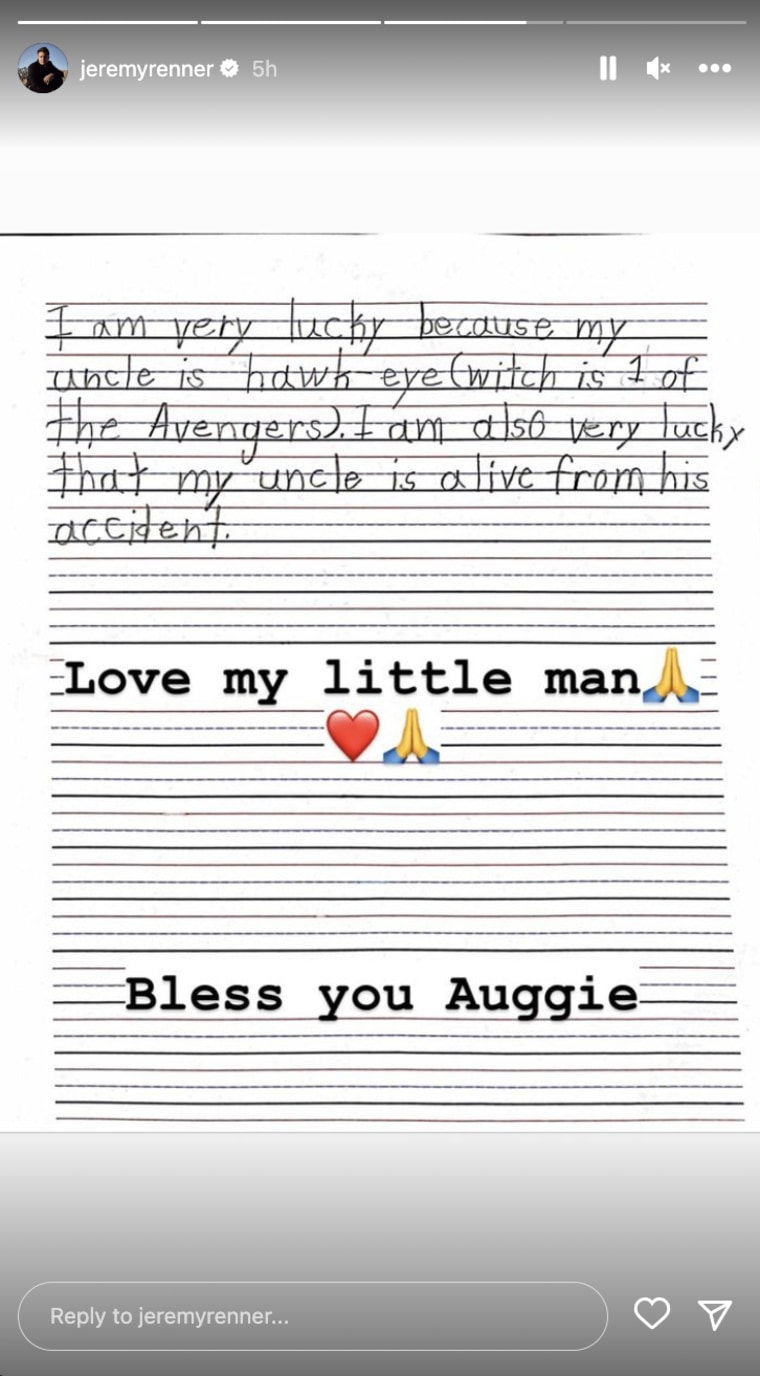 jeremyrenner 5h
I am very lucky because my
uncle is hawk-eye (witch is 1 of
the Avengers). I am also very lucky
that my uncle is alive from his
accident.
Love my little man🙏
❤️🙏
Bless you Auggie
Reply to jeremyrenner...